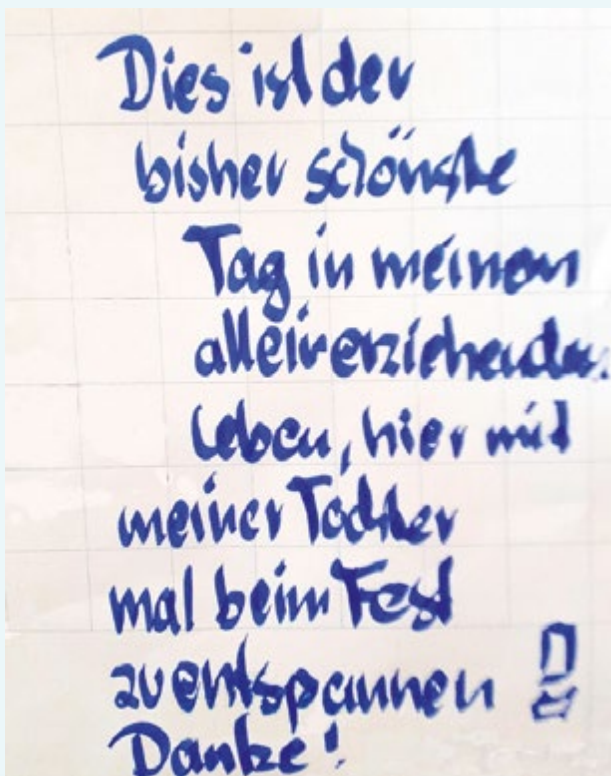 Dies ist der
bisher schönste
Tag in meinem
alleinerziehenden
Leben, hier mit
meiner Tochter
mal beim Fest
zu entspannen !
Danke!